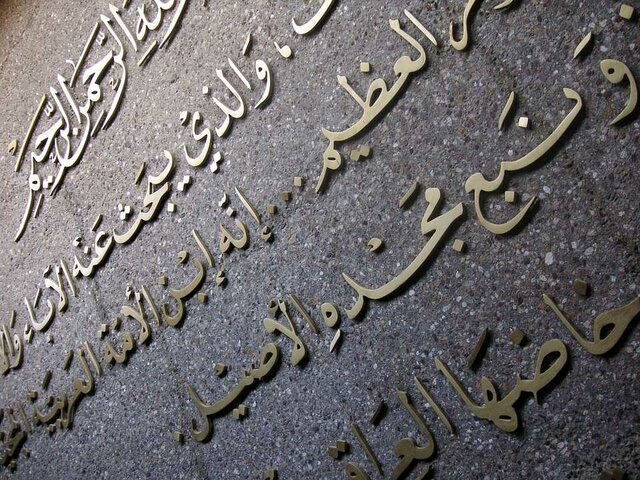 الله الرحمن الرحيم
والذي يبحث عنه الآباء
العظيم ... إنه ابن الأمة العربية
ونبع مجده الأصيل
العراق